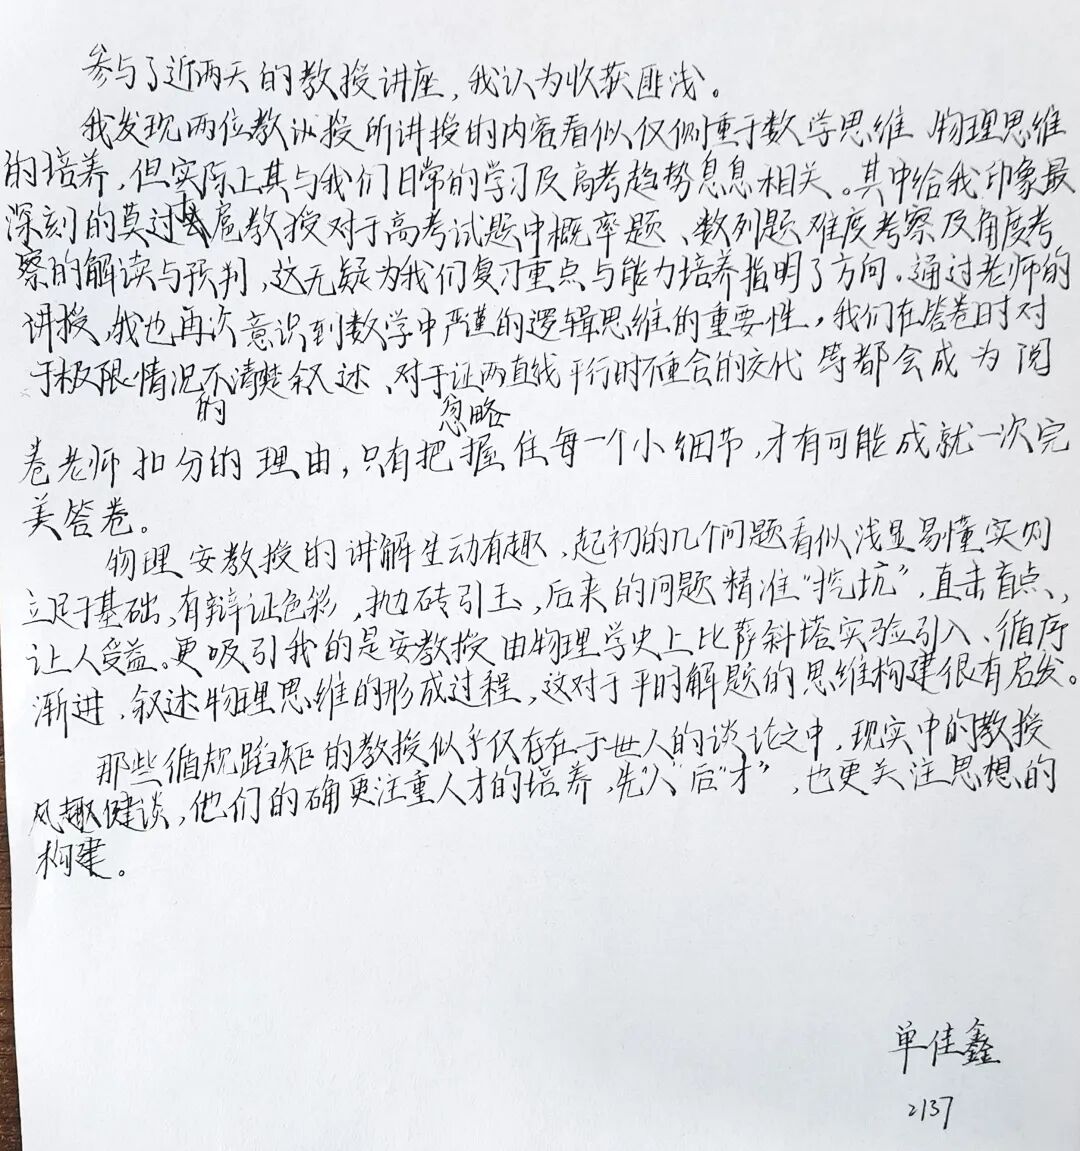 参与了近两天的教授讲座，我认为收获匪浅。
我发现两位教授所讲授的内容看似仅侧重于数学思维、物理思维
的培养，但实际上其与我们日常的学习及高考趋势息息相关。其中给我印象最
深刻的莫过于扈教授对于高考试题中概率题、数列题难度考察及角度考
察的解读与预判，这无疑为我们复习重点与能力培养指明了方向。通过老师的
讲授，我也再次意识到数学中严谨的逻辑思维的重要性，我们在答卷时对
于极限情况不清楚叙述、对于证两直线平行时不重合的交代等都会成为阅
的 忽略
卷老师扣分的理由，只有把握住每一个小细节，才有可能成就一次完
美答卷。
物理安教授的讲解生动有趣，起初的几个问题看似浅显易懂实则
立足于基础，有辩证色彩，抛砖引玉，后来的问题精准“挖坑”，直击盲点，
让人受益。更吸引我的是安教授由物理学史上比萨斜塔实验引入、循序
渐进，叙述物理思维的形成过程，这对于平时解题的思维构建很有启发。
那些循规蹈矩的教授似乎仅存在于世人的谈论之中，现实中的教授
风趣健谈，他们的确更注重人才的培养，先“人”后“才”，也更关注思想的
构建。
单佳鑫
2137